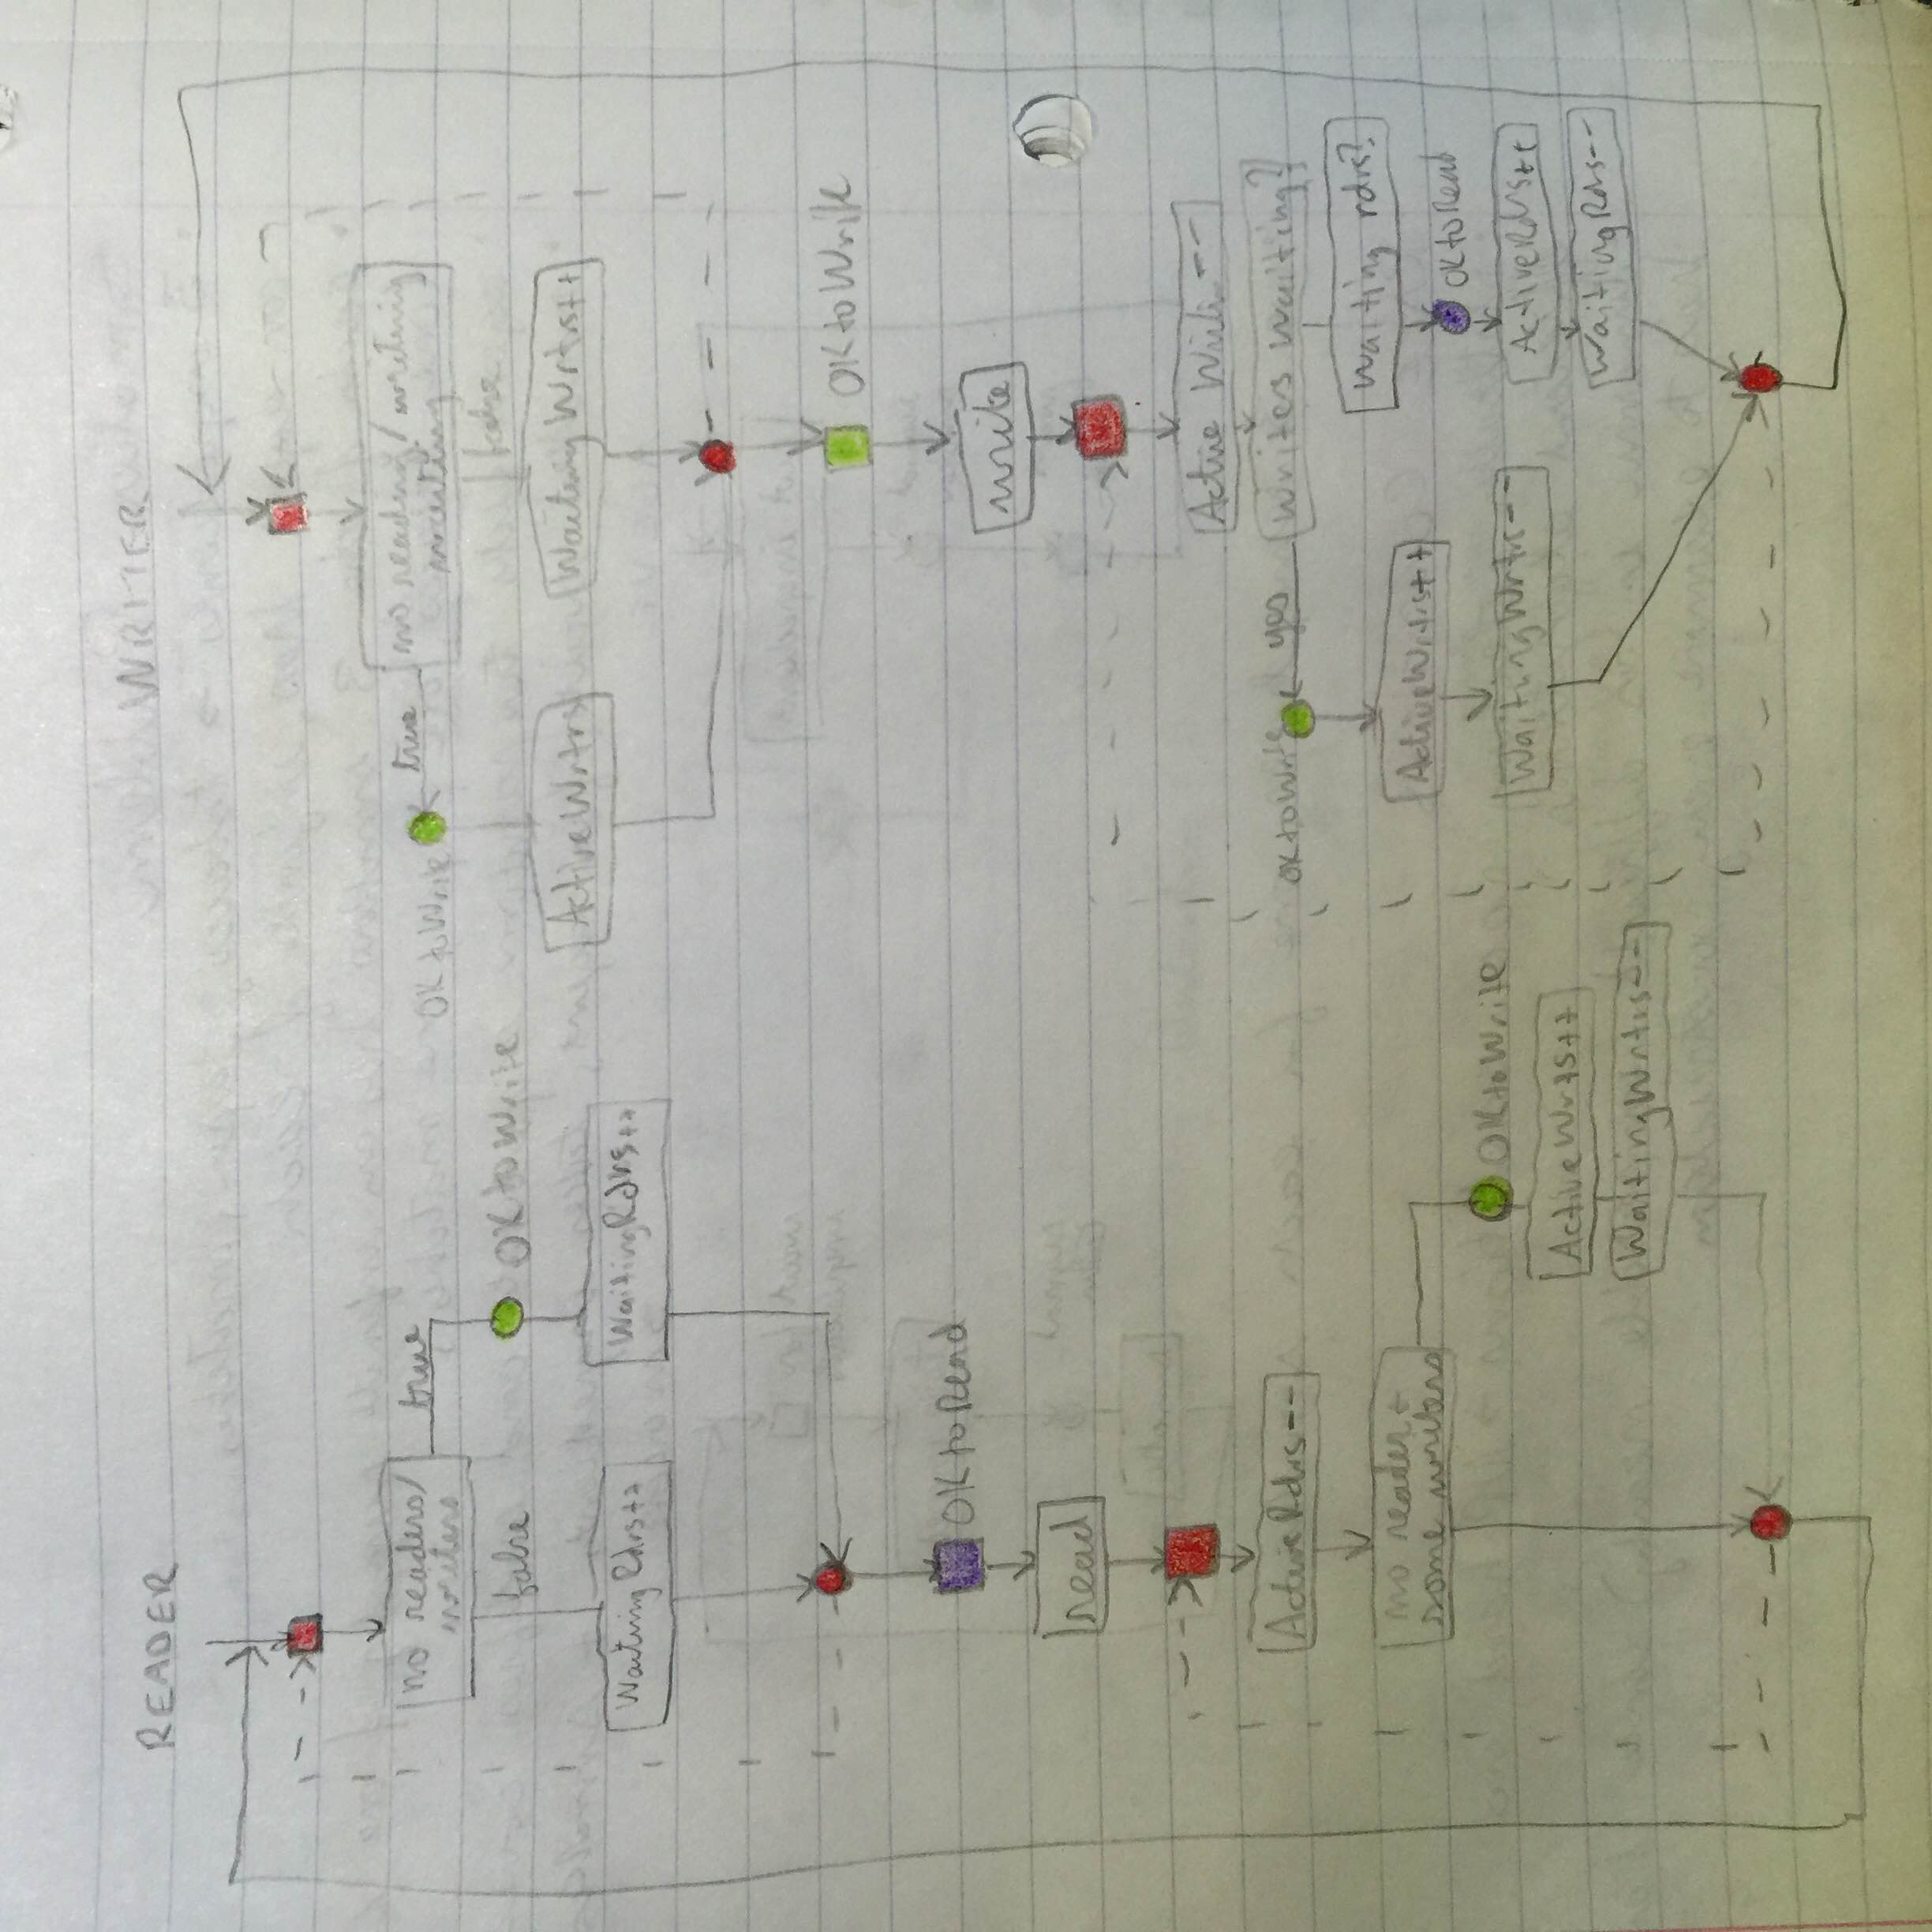 READER
no readers/
writers
true
false
OKtoWrite
WaitingRdrs++
WaitingRdrs++
OKtoRead
read
ActiveRdrs--
no reader+
some writers
OKtoWrite
ActiveWrts++
WaitingWrtrs--
WRITER
no reading/writing
true
OKtoWrite
false
ActiveWrtrs
Waiting Wrtrs++
OKtoWrite
write
Active
Writers waiting?
yes
OKtoWrite
Waiting rdrs?
ActiveWrtrs++
OKtoRead
WaitingWrtrs--
ActiveRdrs++
WaitingRdrs--